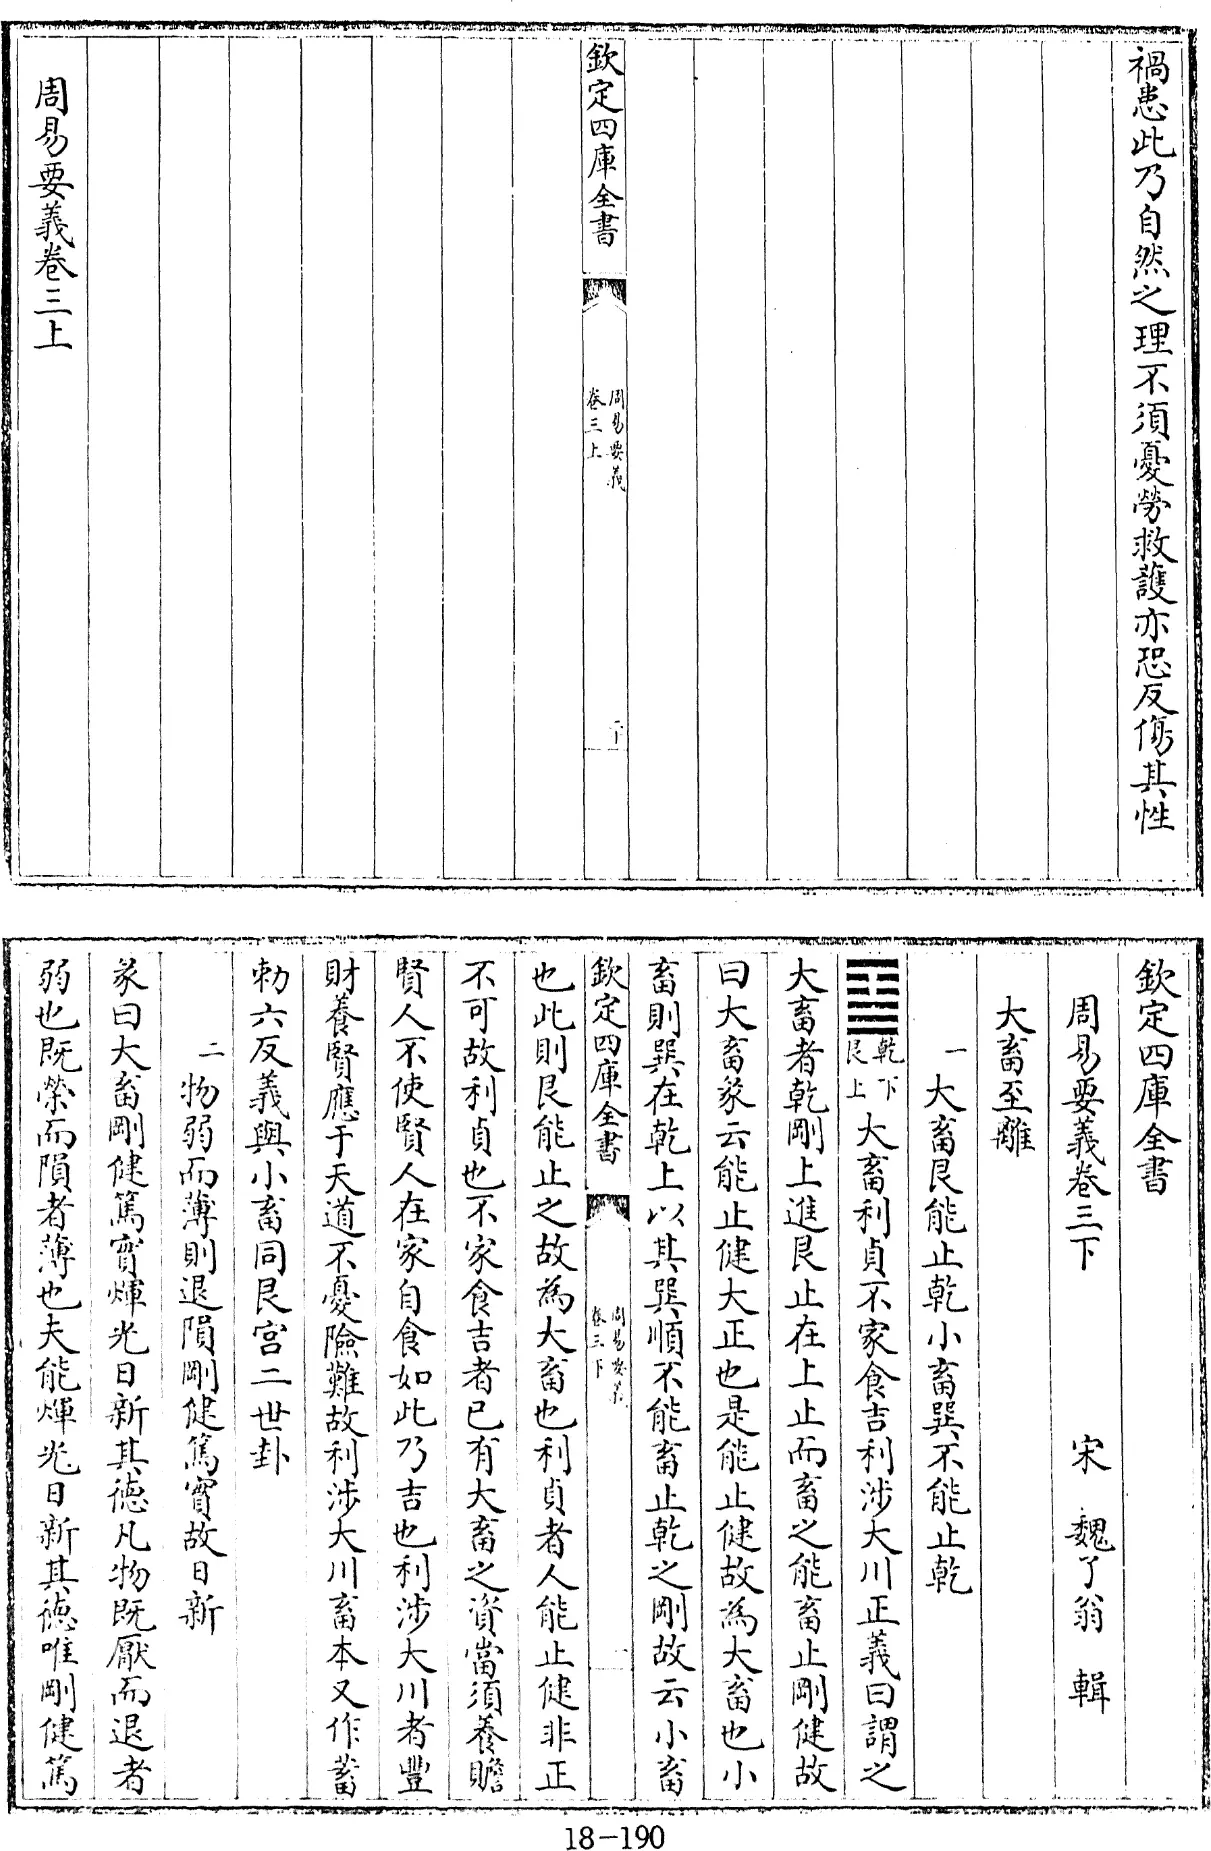 禍患此乃自然之理不須憂勞救護亦恐反傷其性
欽定四庫全書
周易要義
卷三上
周易要義卷三上
欽定四庫全書
周易要義卷三下 宋 魏了翁 輯
大畜至離
一 大畜艮能止乾小畜巽不能止乾
乾下
艮上
大畜利貞不家食吉利涉大川正義曰謂之
大畜者乾剛上進艮止在上止而畜之能畜止剛健故
曰大畜彖云能止健大正也是能止健故為大畜也小
畜則巽在乾上以其巽順不能畜止乾之剛故云小畜
欽定四庫全書
周易要義
卷三下
一
也此則艮能止之故為大畜也利貞者人能止健非正
不可故利貞也不家食吉者已有大畜之資當須養贍
賢人不使賢人在家自食如此乃吉也利涉大川者豐
財養賢應于天道不憂險難故利涉大川畜本又作蓄
勑六反義與小畜同艮宮二世卦
二 物弱而薄則退隕剛健篤實故日新
彖曰大畜剛健篤實煇光日新其德凡物既厭而退者
弱也既榮而隕者薄也夫能煇光日新其德唯剛健篤
18-190